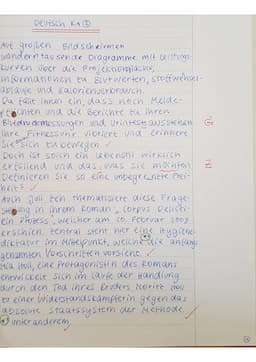 DEUTSCH KA ①
Auf großen Bildschirmen
wandern tausende Diagramme mit Leistungs-
kurven über die Projektionsfläche,
Informationen zu Blutwerten, Stoffwechsel-
abläufe und Kalorienverbrauch.
Du fällt ihnen ein, dass noch Melde-
pflichten und die Berichte zu ihren
Blutdruckmessungen und Urintest ausstehen
Ihre Fitnessuhr vibriert und erinnert
Sie sich zu bewegen.
Doch ist solch ein Lebensstil wirklich
erfüllend und das, was sie möchten
Definieren Sie so eine unbegrenzte Frei-
heit?
Auch Juli Zeh thematisiert diese Frage-
stellung in ihrem Roman „Corpus Delicti-
ein Prozess", welcher am 10. Februar 2009
erschien. Zentral steht hier eine Hygiene-
diktatur im Mittelpunkt, welche die anfangs
genannten Vorschriften vorsieht.
Mia Holl, eine Protagonistin des Romans
entwickelt sich im Laufe der Handlung
durch den Tod ihres Bruders Moritz Holl
zu einer Widerstandskämpferin gegen das
absolute Staatssystem der Methode
unter anderem.
G
Z